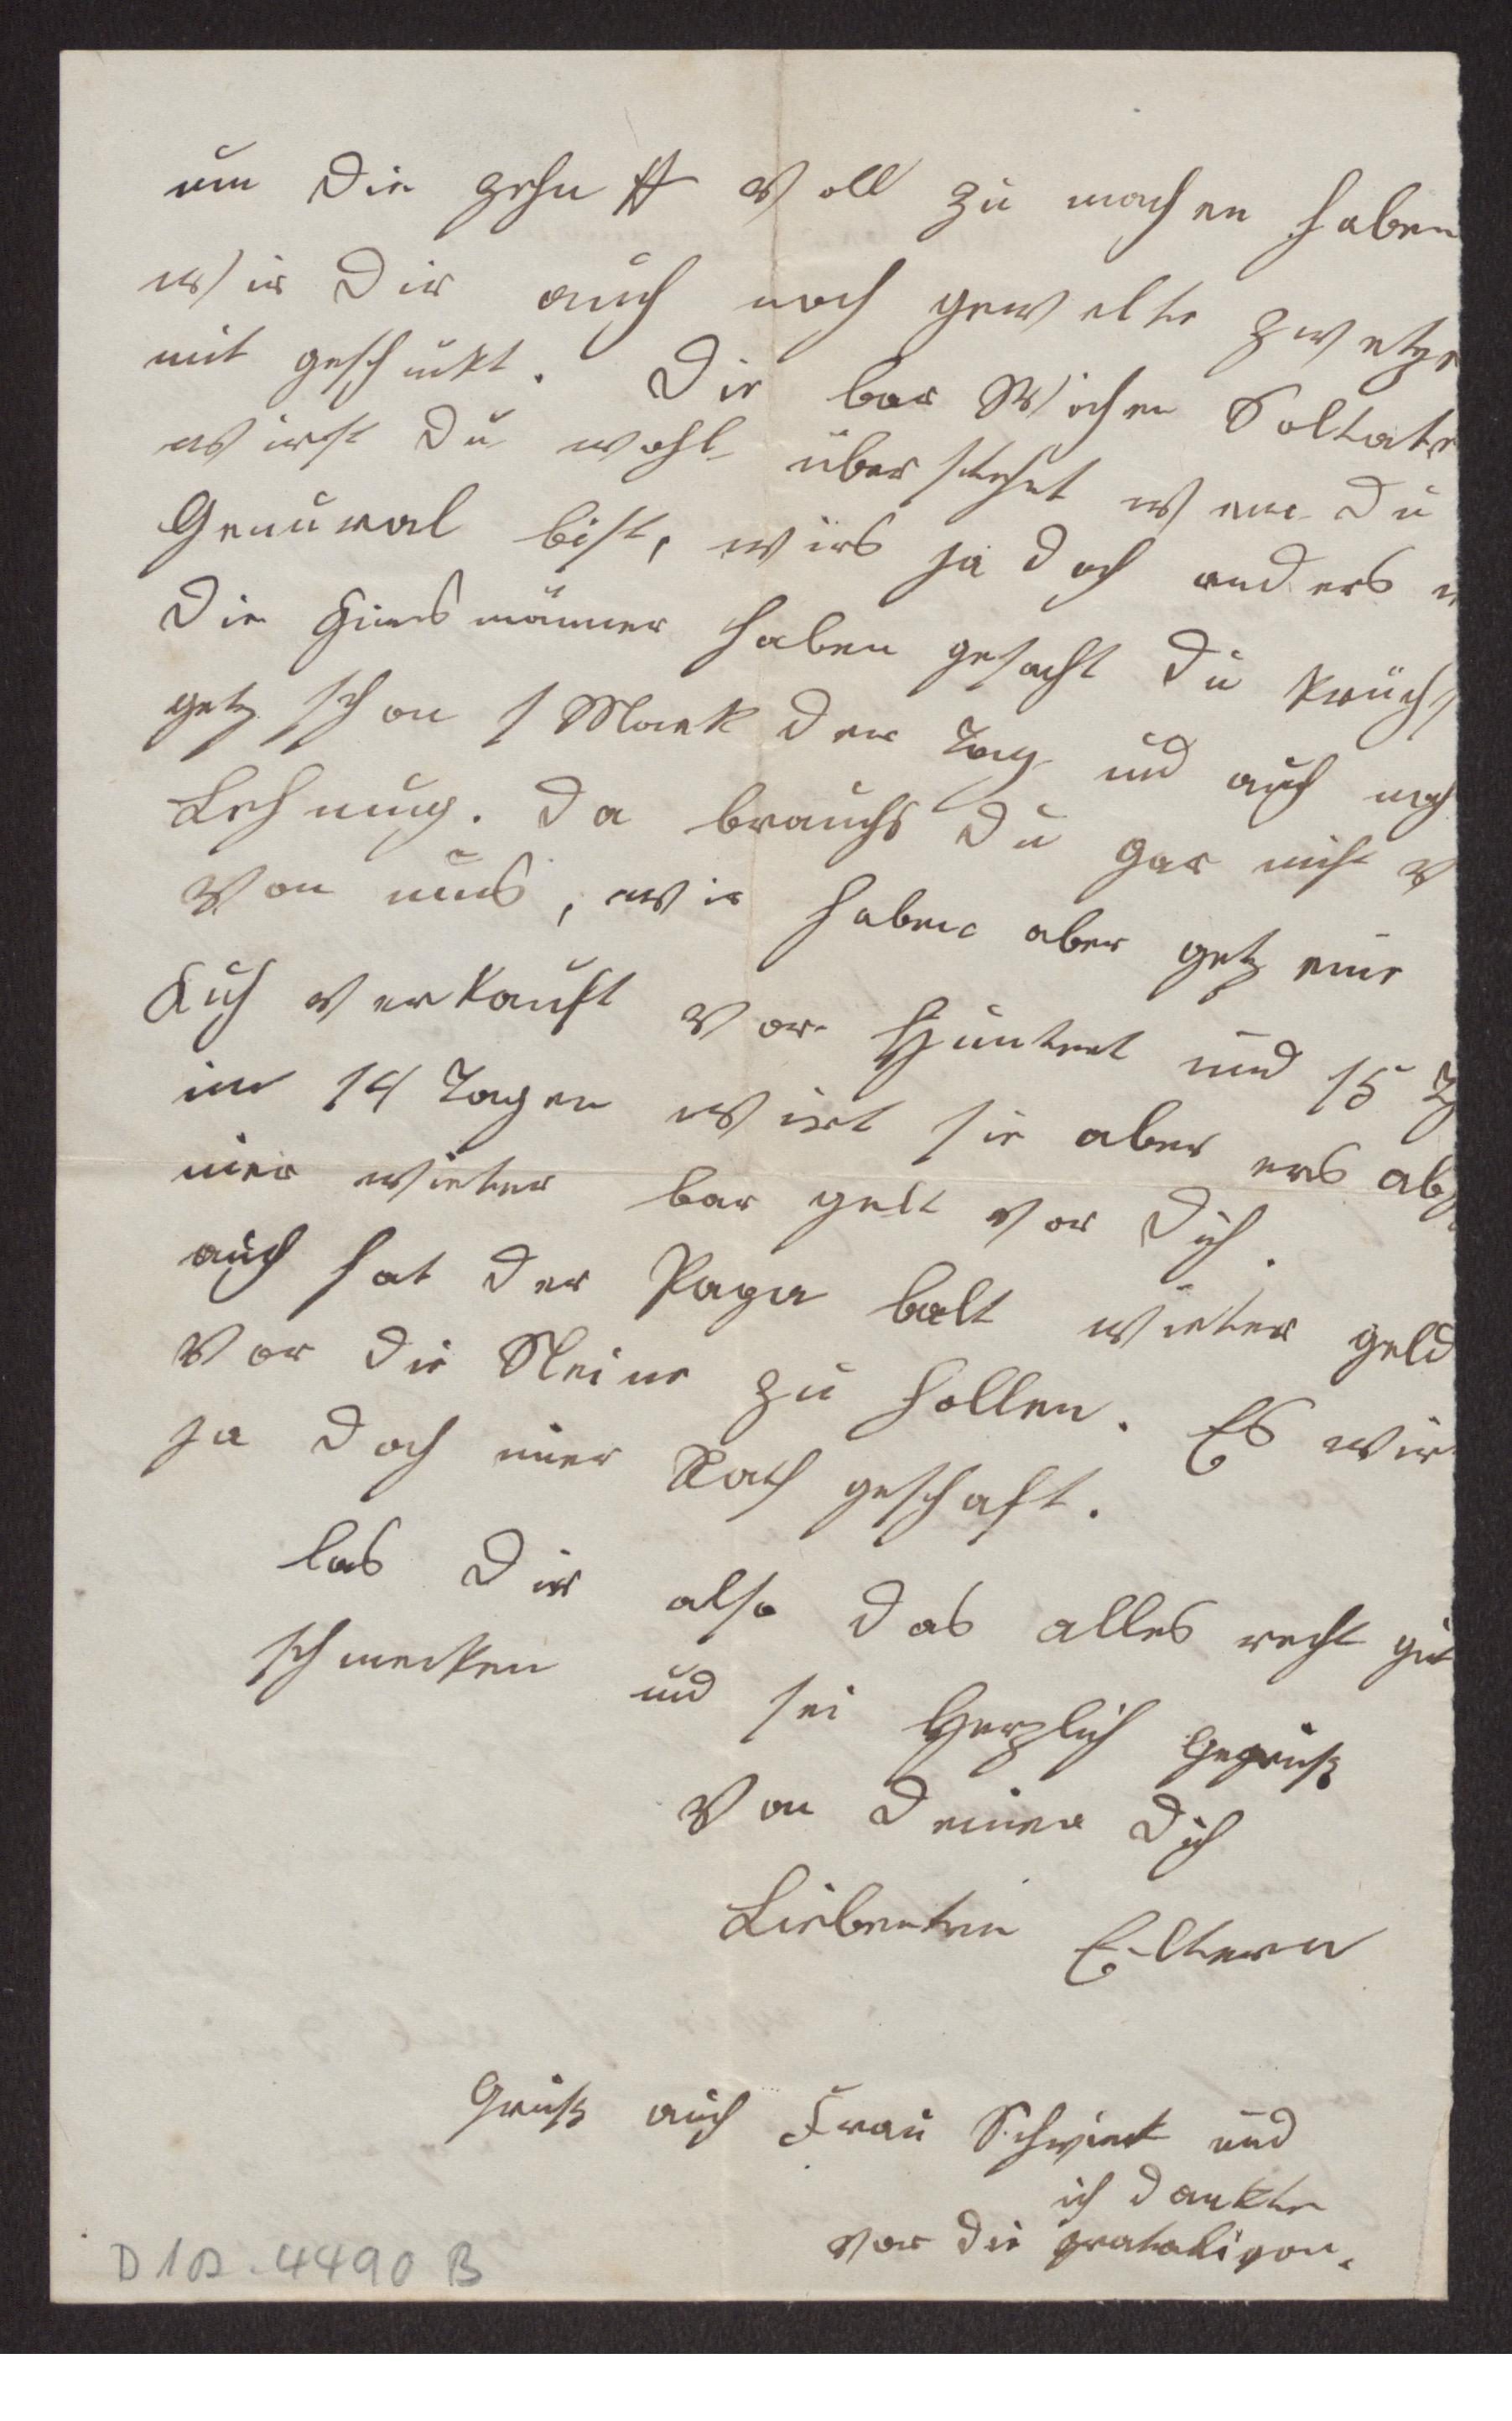 um die zehn ℔ voll zu machen haben
wir dir auch noch gewelte zwetge
mit geschickt. Die bar Wochen Soltate
wirst du wohl überstehnt wenn du
Genural bist, wirs ja doch anders
die haben gesacht du krüchs
getz schon 1 Mark den Tag und auch noch
Lehnung. da brauchs du gar nicht
von uns, wir haben aber getz eine
Kuh verkauft vor Huntret und 15
in 14 Tagen wirt sie aber ers
wieter bar gelt vor dich.
auch hat der Papa balt wieter geld
vor die Steine zu hollen. Es wir
ja doch imer Rath geschaft.
las dir also das alles recht gut
schmecken und sei Herzlich gegrüß
von deiner dich
Liebenten Eltern
Grüß auch Frau Schwiert und
ich dankte
vor die gratulizon.
D1D.4490 B